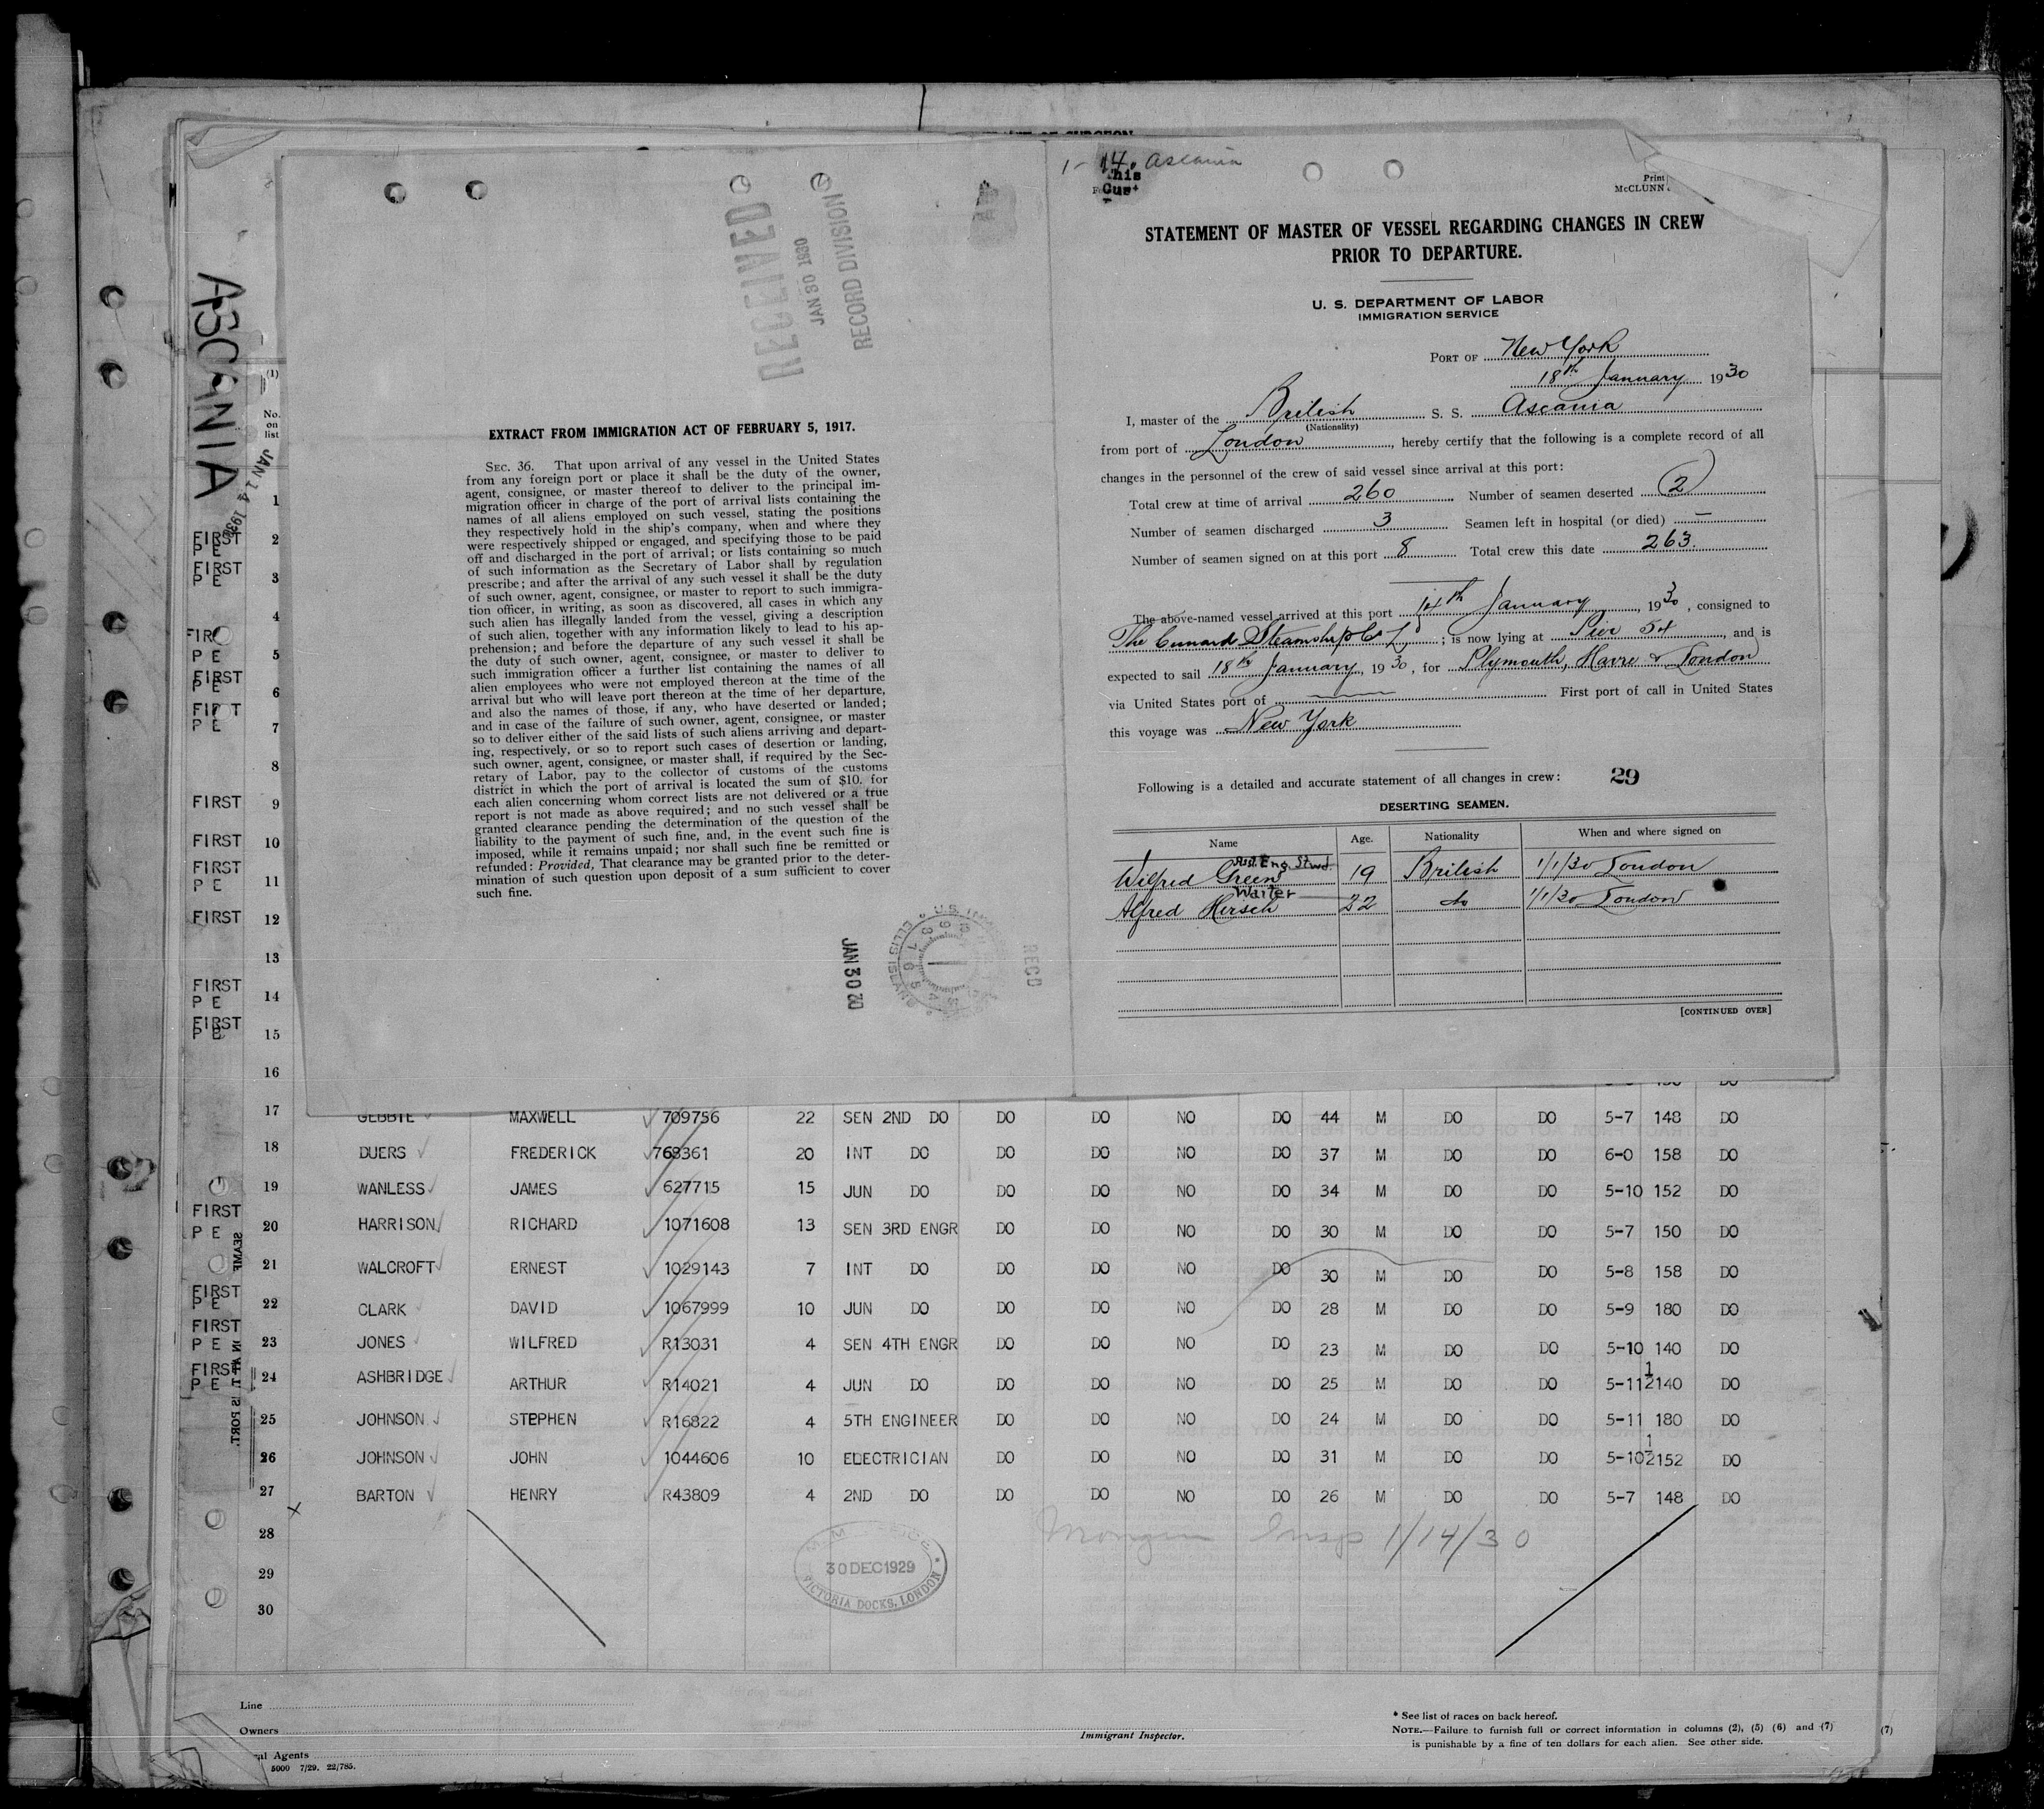 ASCANIA
JAN 14 1930
RECEIVED
JAN 30 1930
RECORD DIVISION
EXTRACT FROM IMMIGRATION ACT OF FEBRUARY 5, 1917.
SEC. 36. That upon arrival of any vessel in the United States
from any foreign port or place it shall be the duty of the owner,
agent, consignee, or master thereof to deliver to the principal im-
migration officer in charge of the port of arrival lists containing the
names of all aliens employed on such vessel, stating the positions
they respectively hold in the ship's company, when and where they
were respectively shipped or engaged, and specifying those to be paid
off and discharged in the port of arrival; or lists containing so much
of such information as the Secretary of Labor shall by regulation
prescribe; and after the arrival of any such vessel it shall be the duty
of such owner, agent, consignee, or master to report to such immigra-
tion officer, in writing, as soon as discovered, all cases in which any
such alien has illegally landed from the vessel, giving a description
of such alien, together with any information likely to lead to his ap-
prehension; and before the departure of any such vessel it shall be
the duty of such owner, agent, consignee, or master to deliver to
such immigration officer a further list containing the names of all
alien employees who were not employed thereon at the time of the
arrival but who will leave port thereon at the time of her departure,
and also the names of those, if any, who have deserted or landed;
and in case of the failure of such owner, agent, consignee, or master
so to deliver either of the said lists of such aliens arriving and depart-
ing, respectively, or so to report such cases of desertion or landing,
such owner, agent, consignee, or master shall, if required by the Sec-
retary of Labor, pay to the collector of customs of the customs
district in which the port of arrival is located the sum of $10. for
each alien concerning whom correct lists are not delivered or a true
report is not made as above required; and no such vessel shall be
granted clearance pending the determination of the question of the
liability to the payment of such fine, and, in the event such fine is
imposed, while it remains unpaid; nor shall such fine be remitted or
refunded: Provided, That clearance may be granted prior to the deter-
mination of such question upon deposit of a sum sufficient to cover
such fine.
JAN 30
RECD
1-14. Ascania
Print
McCLUNN
STATEMENT OF MASTER OF VESSEL REGARDING CHANGES IN CREW
PRIOR TO DEPARTURE.
U. S. DEPARTMENT OF LABOR
IMMIGRATION SERVICE
PORT OF New York
18th January 1930
I, master of the British S. S. Ascania
(Nationality)
from port of London, hereby certify that the following is a complete record of all
changes in the personnel of the crew of said vessel since arrival at this port:
Total crew at time of arrival 260 Number of seamen deserted 2
Number of seamen discharged 3 Seamen left in hospital (or died) —
Number of seamen signed on at this port 8 Total crew this date 263.
The above-named vessel arrived at this port 14th January, 1930, consigned to
The Cunard Steamship Co L; is now lying at Pier 54, and is
expected to sail 18th January, 1930, for Plymouth, Havre & London
via United States port of First port of call in United States
this voyage was New York
Following is a detailed and accurate statement of all changes in crew: 29
DESERTING SEAMEN.
Name Age. Nationality When and where signed on
Asst. Eng. Stwd.
Wilfred Green 19 British 1/1/30 London
Waiter
Alfred Hirsch 22 do 1/1/30 London
[CONTINUED OVER]
(1)
No.
on
list
1
FIRST P E 2
FIRST P E 3
4
FIR P E 5
FIRST P E 6
FIRST P E 7
8
FIRST 9
FIRST 10
FIRST P E 11
FIRST 12
13
FIRST P E 14
FIRST P E 15
16
17 GEBBIE MAXWELL 709756 22 SEN 2ND DO DO DO NO DO 44 M DO DO 5-7 148 DO
18 DUERS FREDERICK 768361 20 INT DO DO DO NO DO 37 M DO DO 6-0 158 DO
19 WANLESS JAMES 627715 15 JUN DO DO DO NO DO 34 M DO DO 5-10 152 DO
FIRST P E 20 HARRISON RICHARD 1071608 13 SEN 3RD ENGR DO DO NO DO 30 M DO DO 5-7 150 DO
21 WALCROFT ERNEST 1029143 7 INT DO DO DO NO DO 30 M DO DO 5-8 158 DO
FIRST P E 22 CLARK DAVID 1067999 10 JUN DO DO DO NO DO 28 M DO DO 5-9 180 DO
FIRST P E 23 JONES WILFRED R13031 4 SEN 4TH ENGR DO DO NO DO 23 M DO DO 5-10 140 DO
FIRST P E 24 ASHBRIDGE ARTHUR R14021 4 JUN DO DO DO NO DO 25 M DO DO 5-11½ 140 DO
25 JOHNSON STEPHEN R16822 4 5TH ENGINEER DO DO NO DO 24 M DO DO 5-11 180 DO
26 JOHNSON JOHN 1044606 10 ELECTRICIAN DO DO NO DO 31 M DO DO 5-10½ 152 DO
27 BARTON HENRY R43809 4 2ND DO DO DO NO DO 26 M DO DO 5-7 148 DO
28
29
30
30 DEC 1929
VICTORIA DOCKS, LONDON
Insp 1/14/30
Line
Owners
al Agents
5000 7/29. 22/785.
Immigrant Inspector.
* See list of races on back hereof.
NOTE.—Failure to furnish full or correct information in columns (2), (5) (6) and (7)
is punishable by a fine of ten dollars for each alien. See other side.
(7)